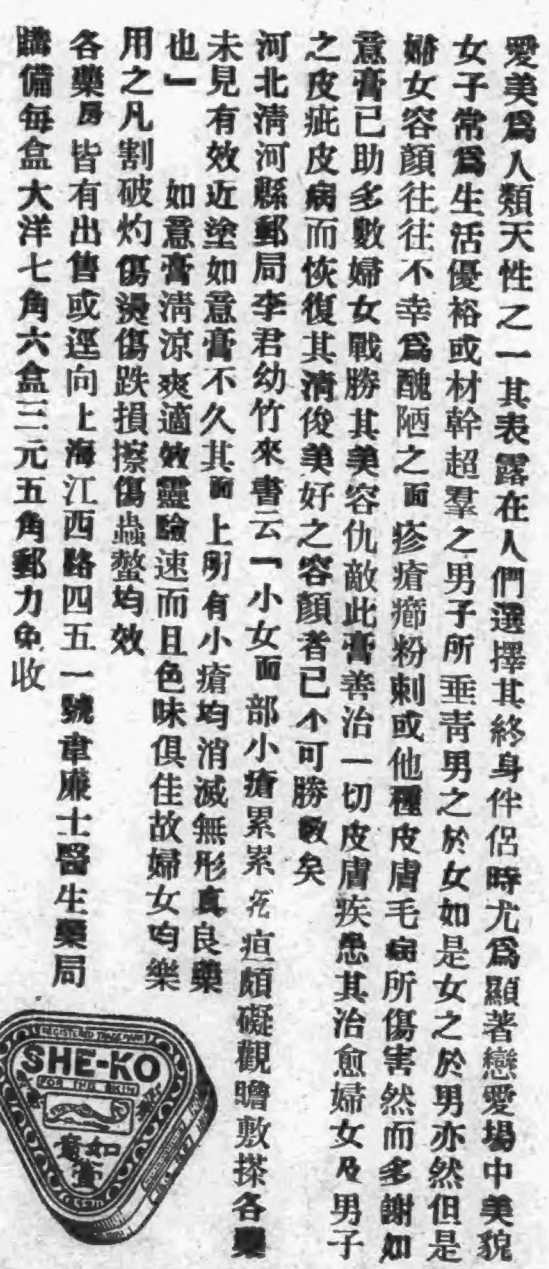 愛美爲人類天性之一其表露在人們選擇其終身伴侶時尤爲顯著戀愛塲中美貌
女子常爲生活優裕或材幹超羣之男子所垂靑男之於女如是女之於男亦然但是
婦女容顏往往不幸爲醜陋之面疹瘡癤粉刺或他種皮膚毛病所傷害然而多謝如
意膏已助多數婦女戰勝其美容仇敵此膏善治一切皮膚疾患其治愈婦女及男子
之皮疵皮病而恢復其淸俊美好之容顏者已不可勝數矣
河北淸河縣郵局李君幼竹來書云「小女面部小瘡累累疙疸頗礙觀瞻敷搽各藥
未見有效近塗如意膏不久其面上所有小瘡均消滅無形眞良藥
也」　如意膏淸涼爽適效靈驗速而且色味俱佳故婦女均樂
用之凡割破灼傷燙傷跌損擦傷蟲螫均效
各藥房皆有出售或逕向上海江西路四五一號韋廉士醫生藥局
購備每盒大洋七角六盒三元五角郵力免收
REGISTERED TRADE MARK
SHE-KO
FOR THE SKIN
如意膏